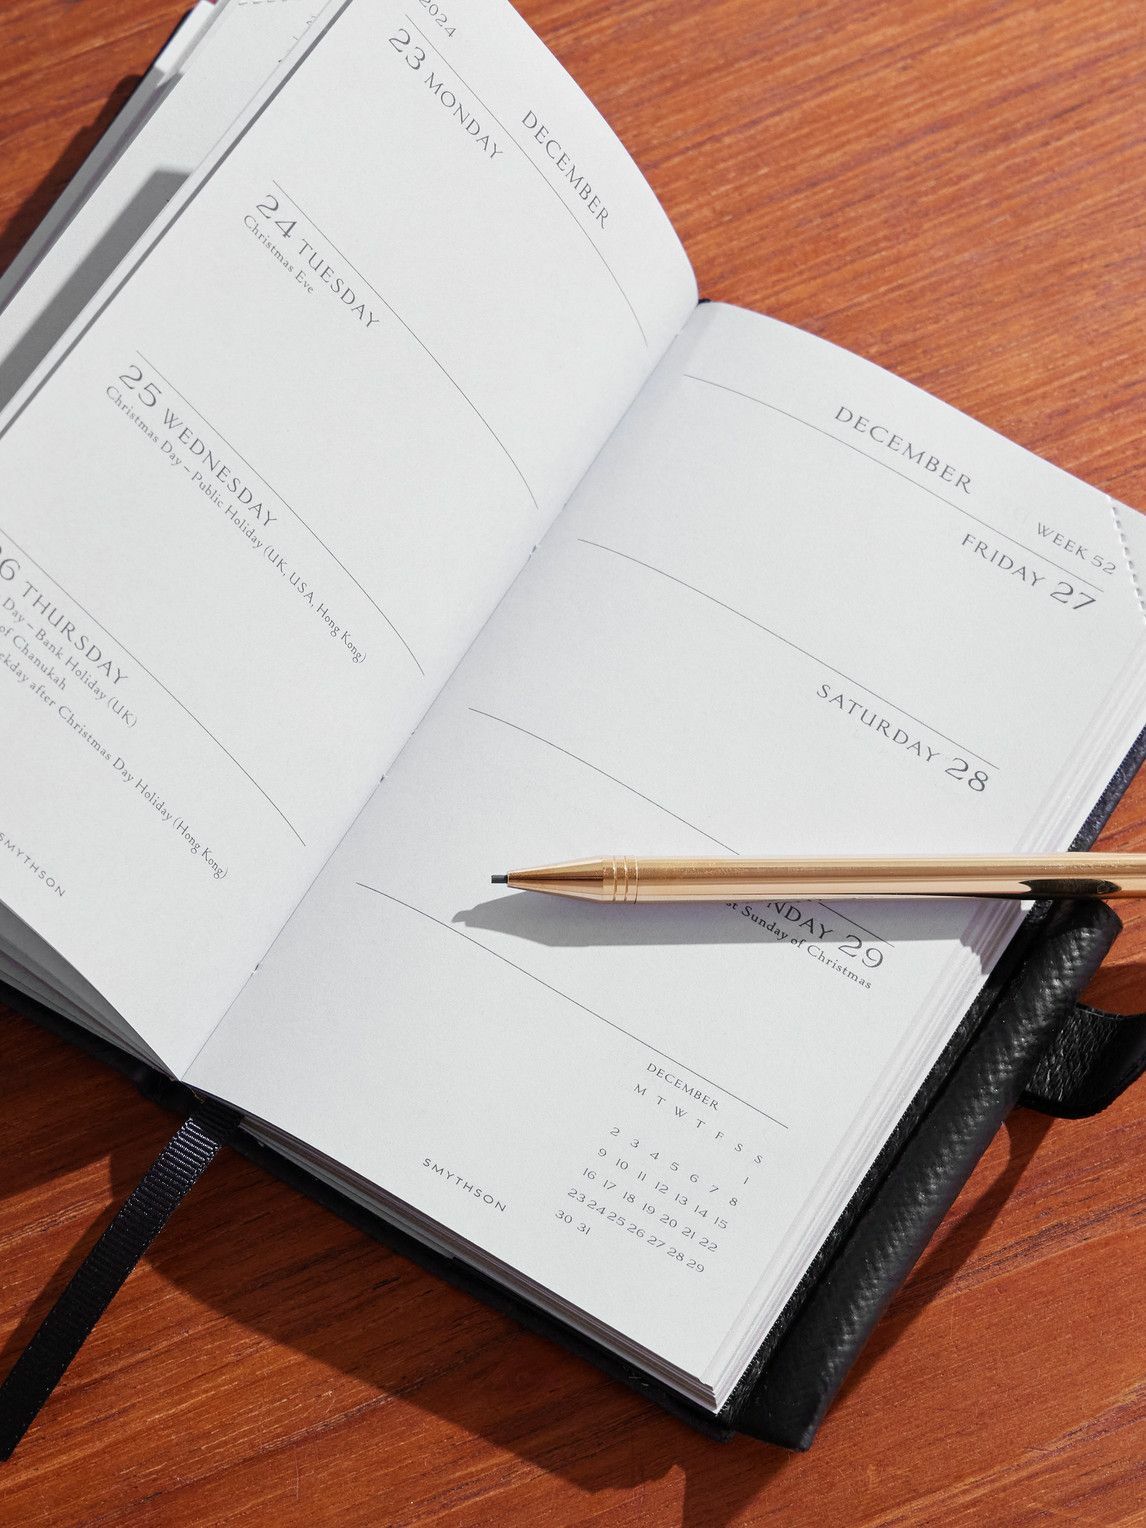 2024
DECEMBER
23 MONDAY
24 TUESDAY
Christmas Eve
25 WEDNESDAY
Christmas Day – Public Holiday (UK, USA, Hong Kong)
THURSDAY
Day – Bank Holiday (UK)
of Chanukah
after Christmas Day Holiday (Hong Kong)
SMYTHSON
DECEMBER
WEEK 52
FRIDAY 27
SATURDAY 28
29
Sunday of Christmas
DECEMBER
M T W T F S S
1
2 3 4 5 6 7 8
9 10 11 12 13 14 15
16 17 18 19 20 21 22
23 24 25 26 27 28 29
30 31
SMYTHSON